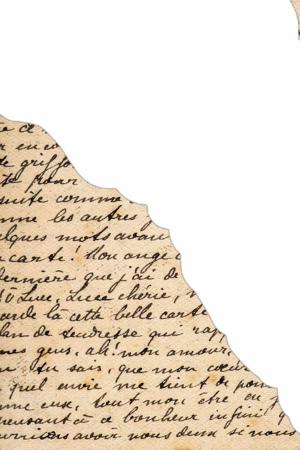 e ce
r en co
de griffo
ite pour
suite comme
mme les autres
elques mots avan
carte! Mon ange
dernière que j'ai de
Luce, Luce chérie,
garde la cette belle carte
lan de tendresse qui rap
mes yeux, ah! mon amour,
tu sais, que mon cœur
quel envie me tient de pou
mme eux, tout mon être en
pensant à ce bonheur infini q
urrions avoir nous deux si nous